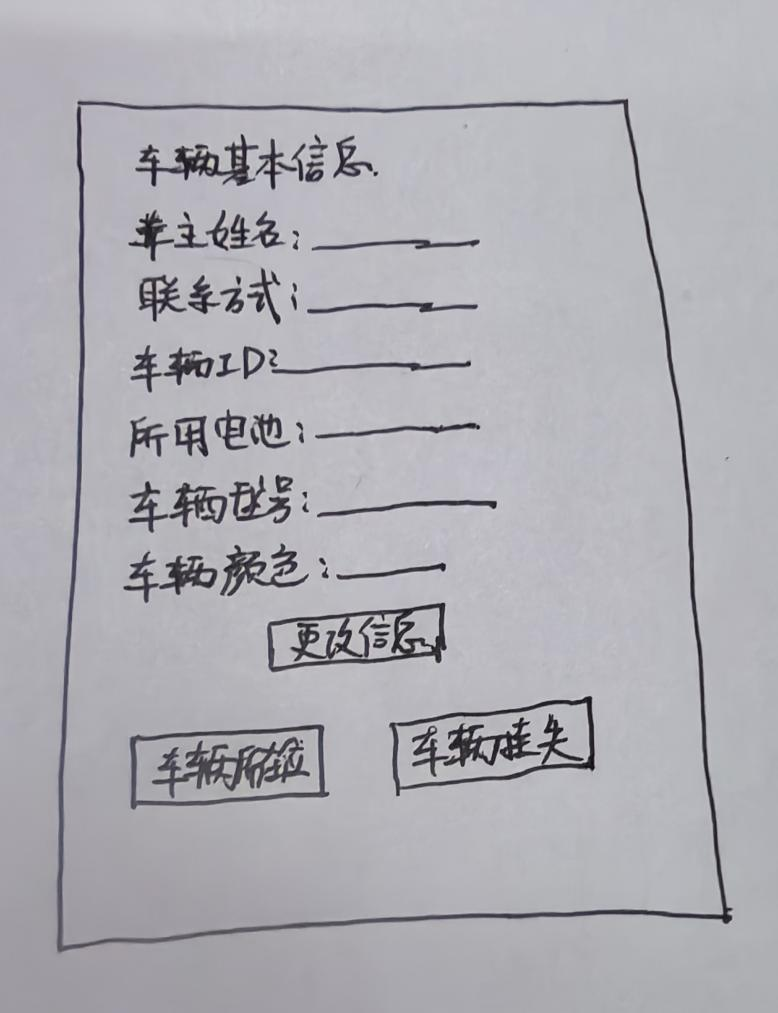 车辆基本信息.
车主姓名:
联系方式:
车辆ID:
所用电池:
车辆型号:
车辆颜色:
更改信息
车辆所在位 车辆挂失